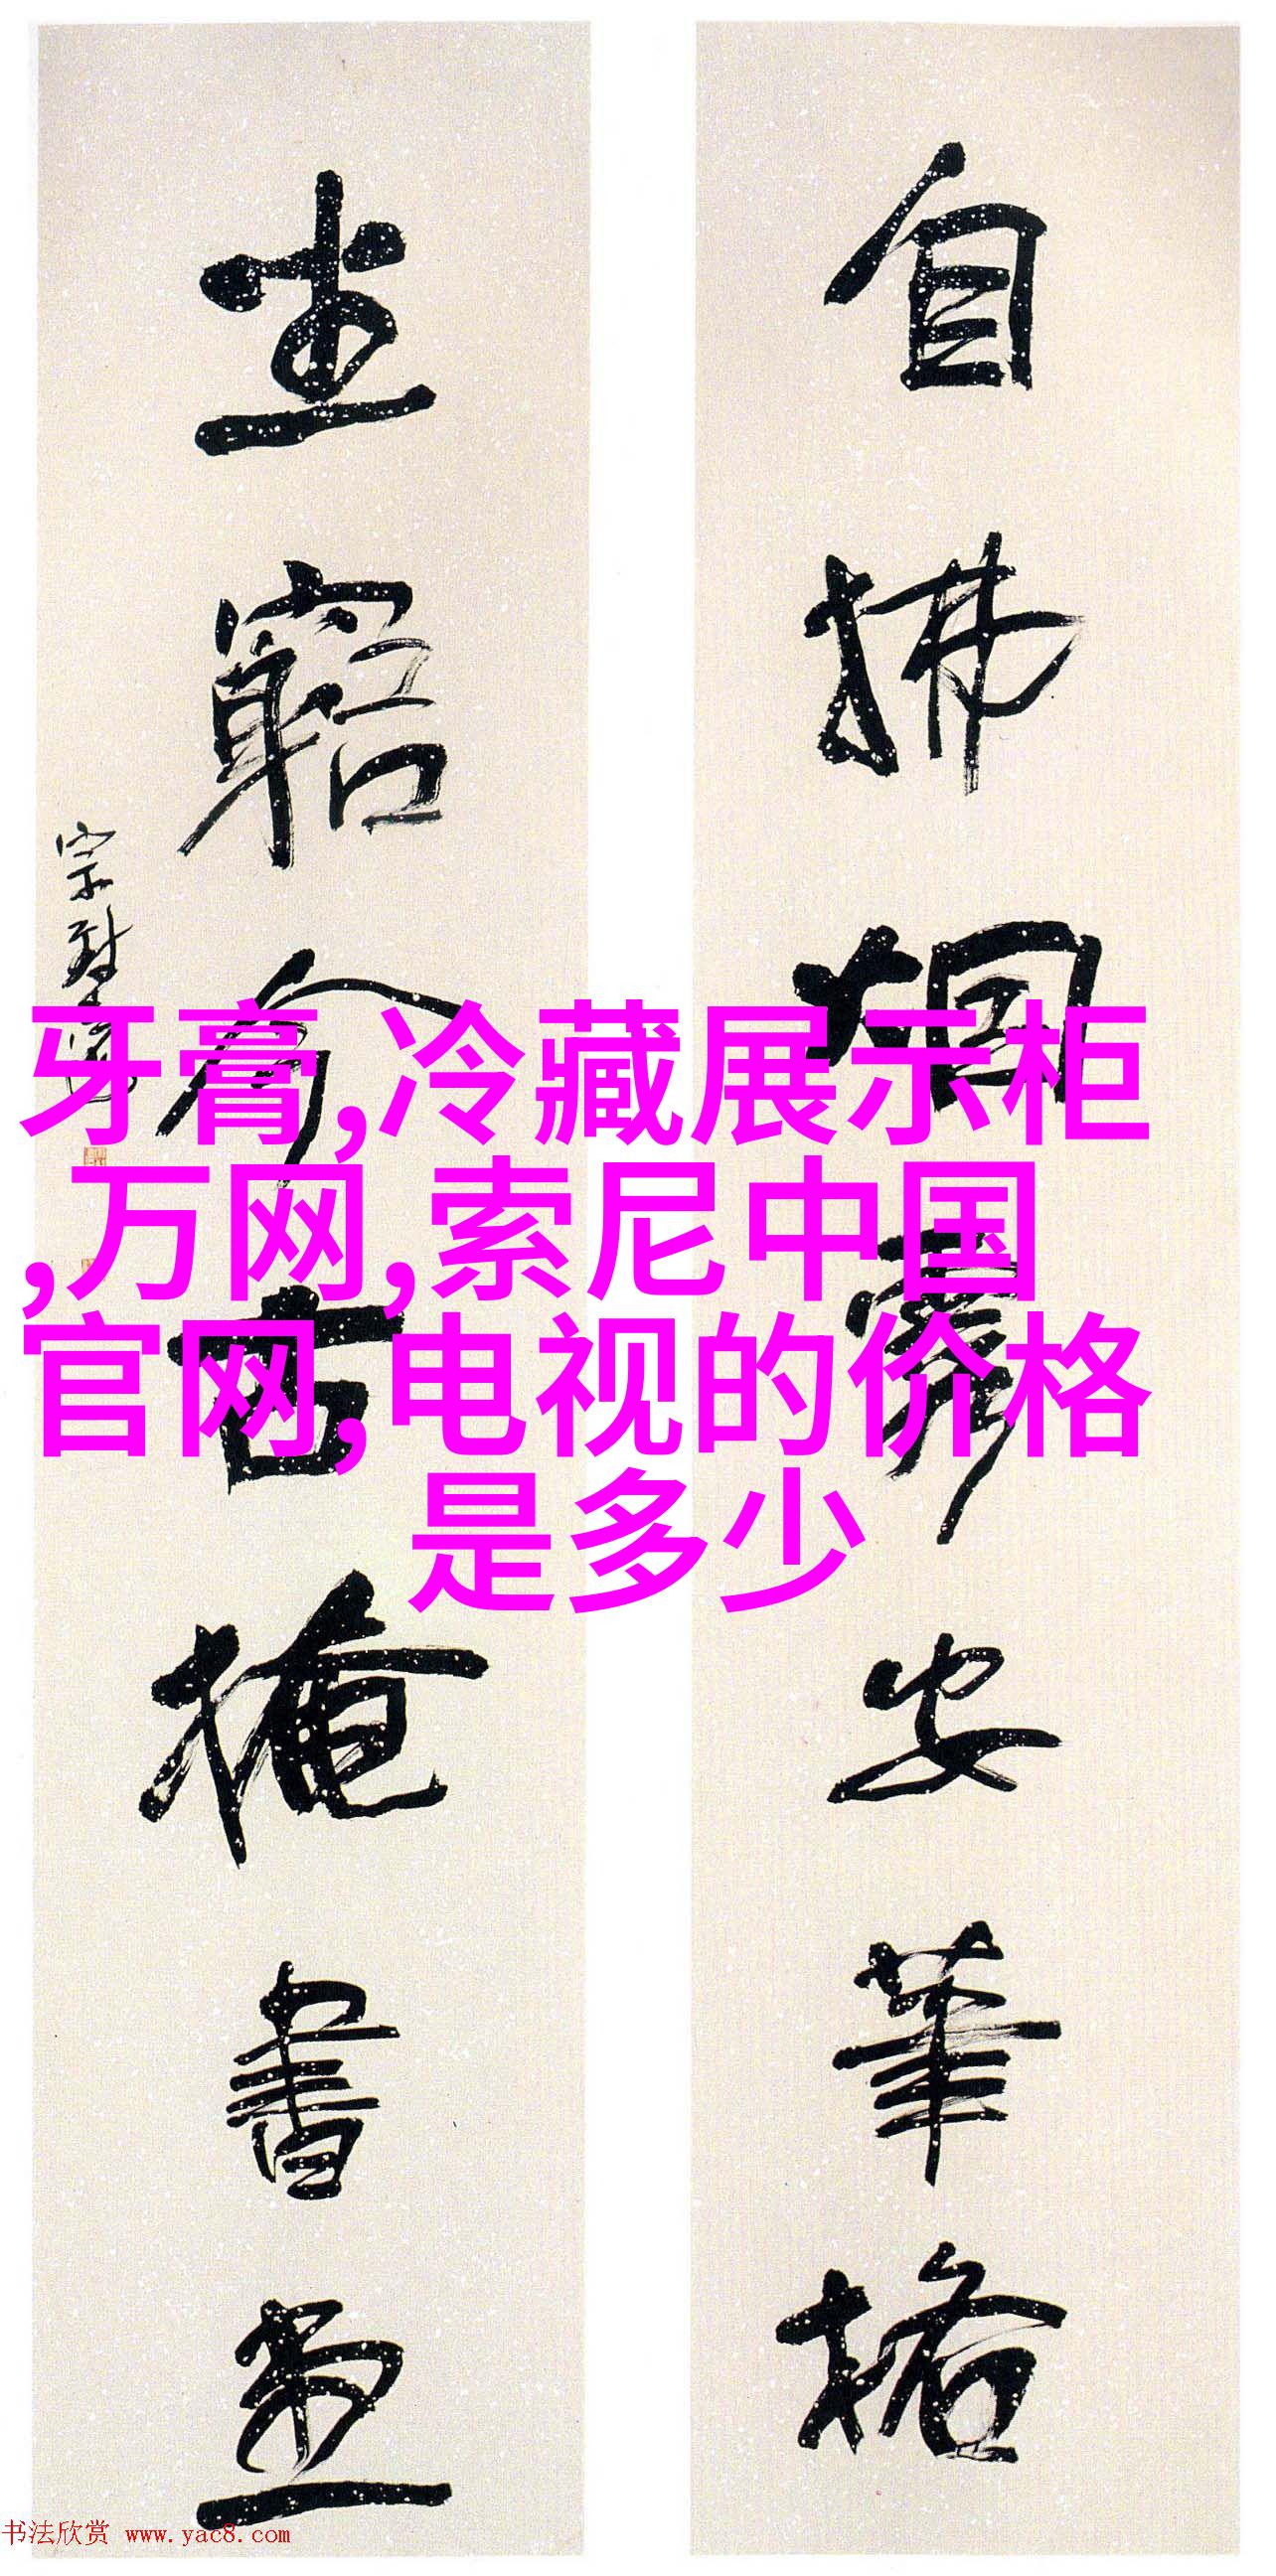 自拂烟霞安筆格
坐窮今古掩書堂
牙膏,冷藏展示柜
,万网,索尼中国
官网,电视的价格
是多少
书法欣赏 www.yac8.com